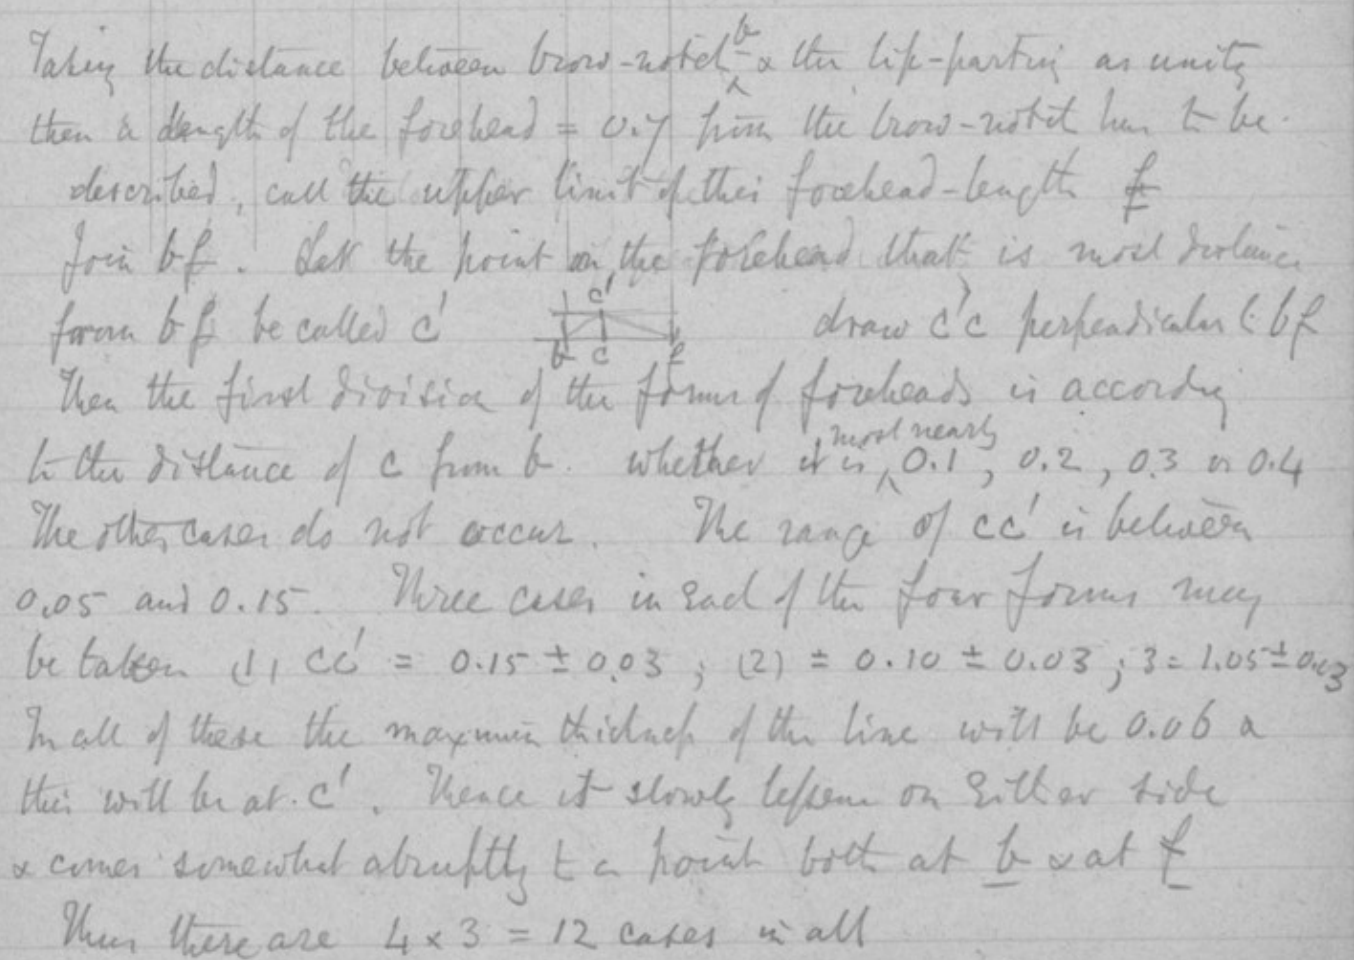 Taking the distance between brow-notch b & the lip-parting as unity
then a length of the forehead = 0.7 from the brow-notch has to be
described, call the upper limit of this forehead-length f
Join bf. Let the point on the forehead that is most distance
from bf be called c' draw c'c perpendicular to bf
c'
b c f
Then the first division of the forms of foreheads is according
to the distance of c from b. whether it is most nearly 0.1, 0.2, 0.3 or 0.4
The other cases do not occur. The range of cc' is between
0.05 and 0.15. Three cases in each of the four forms may
be taken (1) cc' = 0.15 ± 0.03; (2) = 0.10 ± 0.03; 3 = 1.05 ± 0.03
In all of these the maximum thickness of the line will be 0.06 &
this will be at c'. Thence it slowly lessens on either side
& comes somewhat abruptly to a point both at b & at f
Thus there are 4 × 3 = 12 cases in all